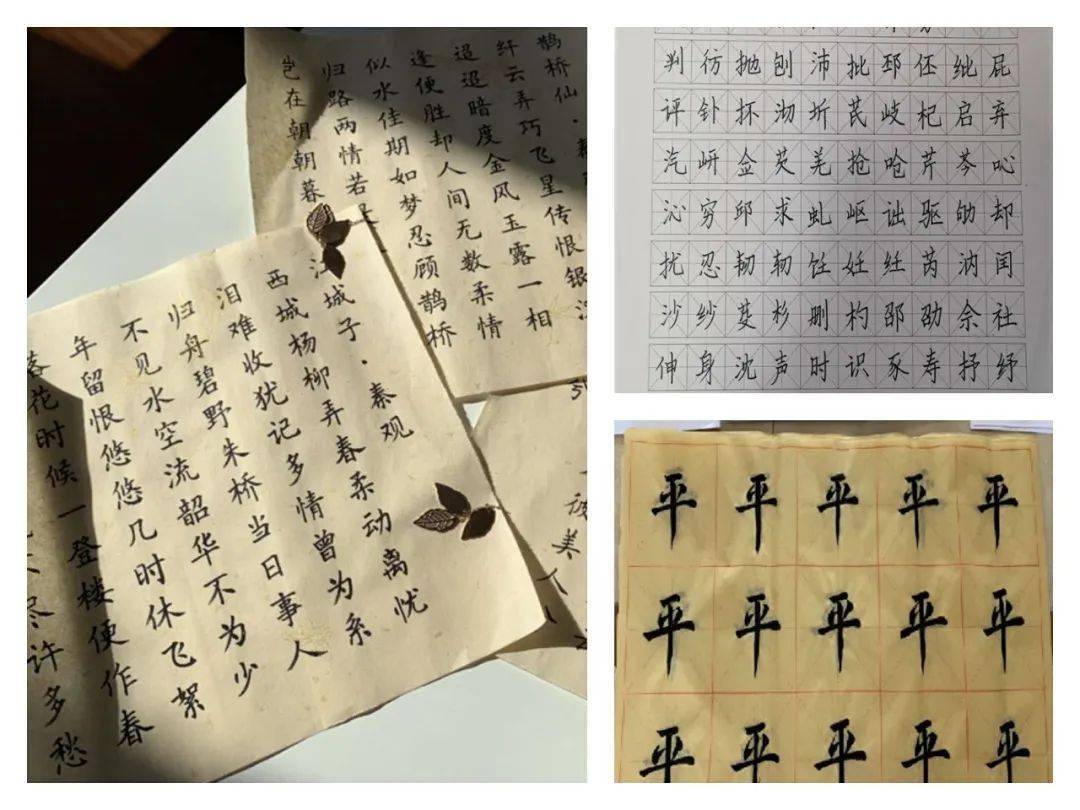 鹊桥仙·
纤云弄巧飞星传恨银
迢迢暗度金风玉露一相
逢便胜却人间无数柔情
似水佳期如梦忍顾鹊桥
归路两情若
岂在朝朝暮
江城子·秦观
西城杨柳弄春柔动离忧
泪难收犹记多情曾为系
归舟碧野朱桥当日事人
不见水空流韶华不为少
年留恨悠悠几时休飞絮
落花时候一登楼便作春
尽许多愁
美
判彷抛刨沛批邳伾纰屁
评钋抔沏圻芪岐杞启弃
汽岍佥芡羌抢呛芹芩吣
沁穷邱求虬岖诎驱劬却
扰忍韧轫饪妊纴芮汭闰
沙纱芟杉删杓邵劭佘社
伸身沈声时识豕寿抒纾
平平平平平
平平平平平
平平平平平